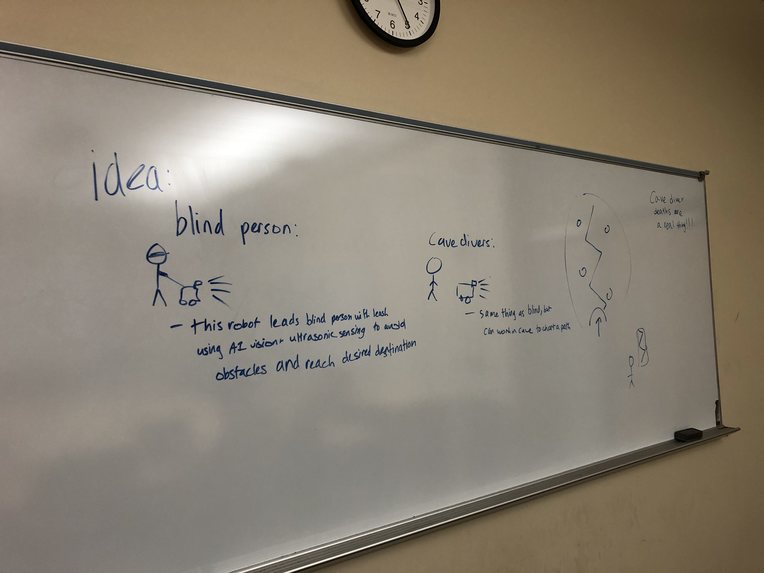 idea:
blind person:
- this robot leads blind person with leash
using AI vision + ultrasonic sensing to avoid
obstacles and reach desired destination
Cave divers:
- same thing as blind, but
can work in cave to chart a path
Cave diver
deaths are
a real thing!!!
3
4
5
6
7
8